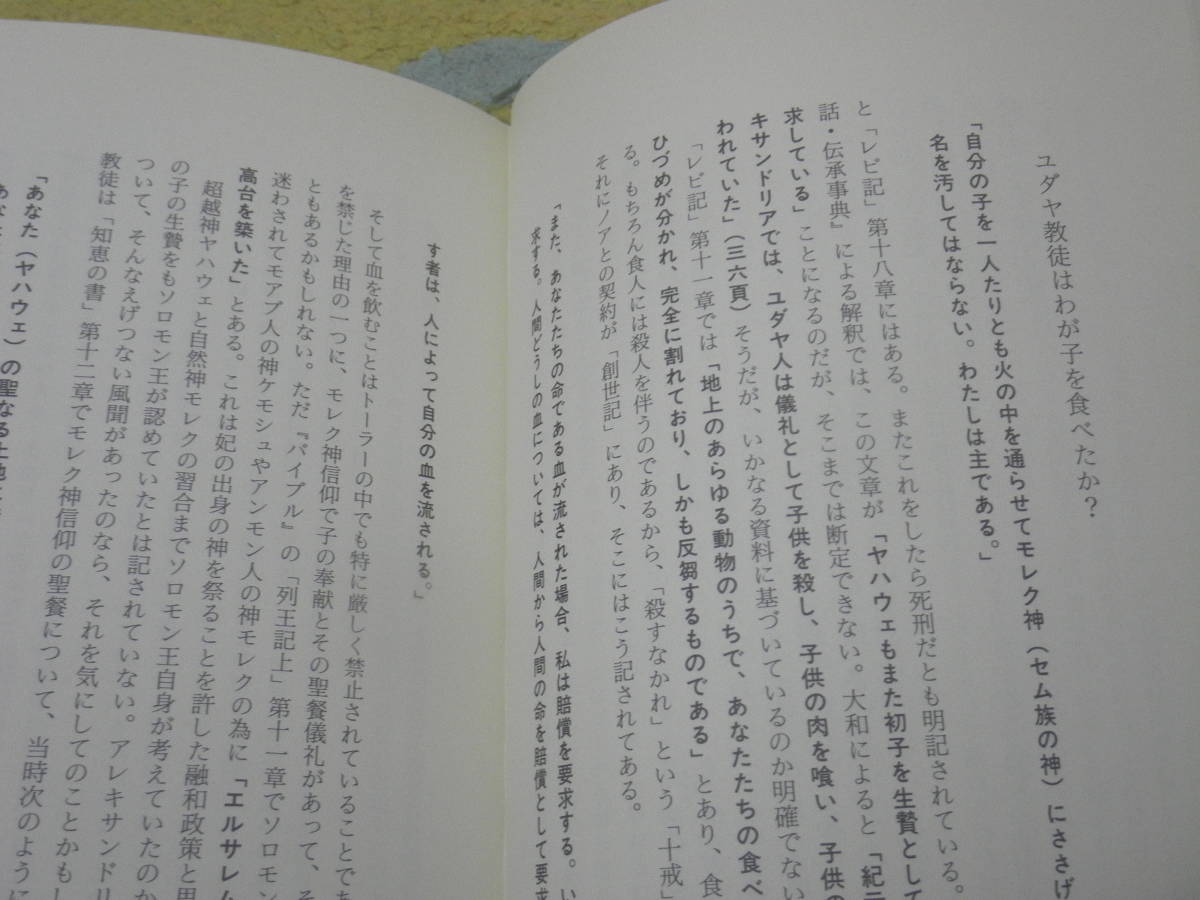 ユダヤ教徒はわが子を食べたか？
「自分の子を一人たりとも火の中を通らせてモレク神（セム族の神）にささげ
名を汚してはならない。わたしは主である。」
と「レビ記」第十八章にはある。またこれをしたら死刑だとも明記されている。
話・伝承事典』による解釈では、この文章が「ヤハウェもまた初子を生贄として
求している」ことになるのだが、そこまでは断定できない。大和によると「紀二
キサンドリアでは、ユダヤ人は儀礼として子供を殺し、子供の肉を喰い、子供の
われていた」（三六頁）そうだが、いかなる資料に基づいているのか明確でない
「レビ記」第十一章では「地上のあらゆる動物のうちで、あなたたちの食べ
ひづめが分かれ、完全に割れており、しかも反芻するものである」とあり、食
る。もちろん食人には殺人を伴うのであるから、「殺すなかれ」という「十戒」
それにノアとの契約が「創世記」にあり、そこにはこう記されてある。
「また、あなたたちの命である血が流された場合、私は賠償を要求する。い
求する。人間どうしの血については、人間から人間の命を賠償として要求
す者は、人によって自分の血を流される。」
そして血を飲むことはトーラーの中でも特に厳しく禁止されていることであ
を禁じた理由の一つに、モレク神信仰で子の奉献とその聖餐儀礼があって、そ
ともあるかもしれない。ただ『バイブル』の「列王記上」第十一章でソロモン
迷わされてモアブ人の神ケモシュやアンモン人の神モレクの為に「エルサレム
高台を築いた」とある。これは妃の出身の神を祭ることを許した融和政策と思
超越神ヤハウェと自然神モレクの習合までソロモン王自身が考えていたのか
の子の生贄をもソロモン王が認めていたとは記されていない。アレキサンドリ
ついて、そんなえげつない風聞があったのなら、それを気にしてのことかもし
教徒は「知恵の書」第十二章でモレク神信仰の聖餐について、当時次のように
「あなた（ヤハウェ）の聖なる土地